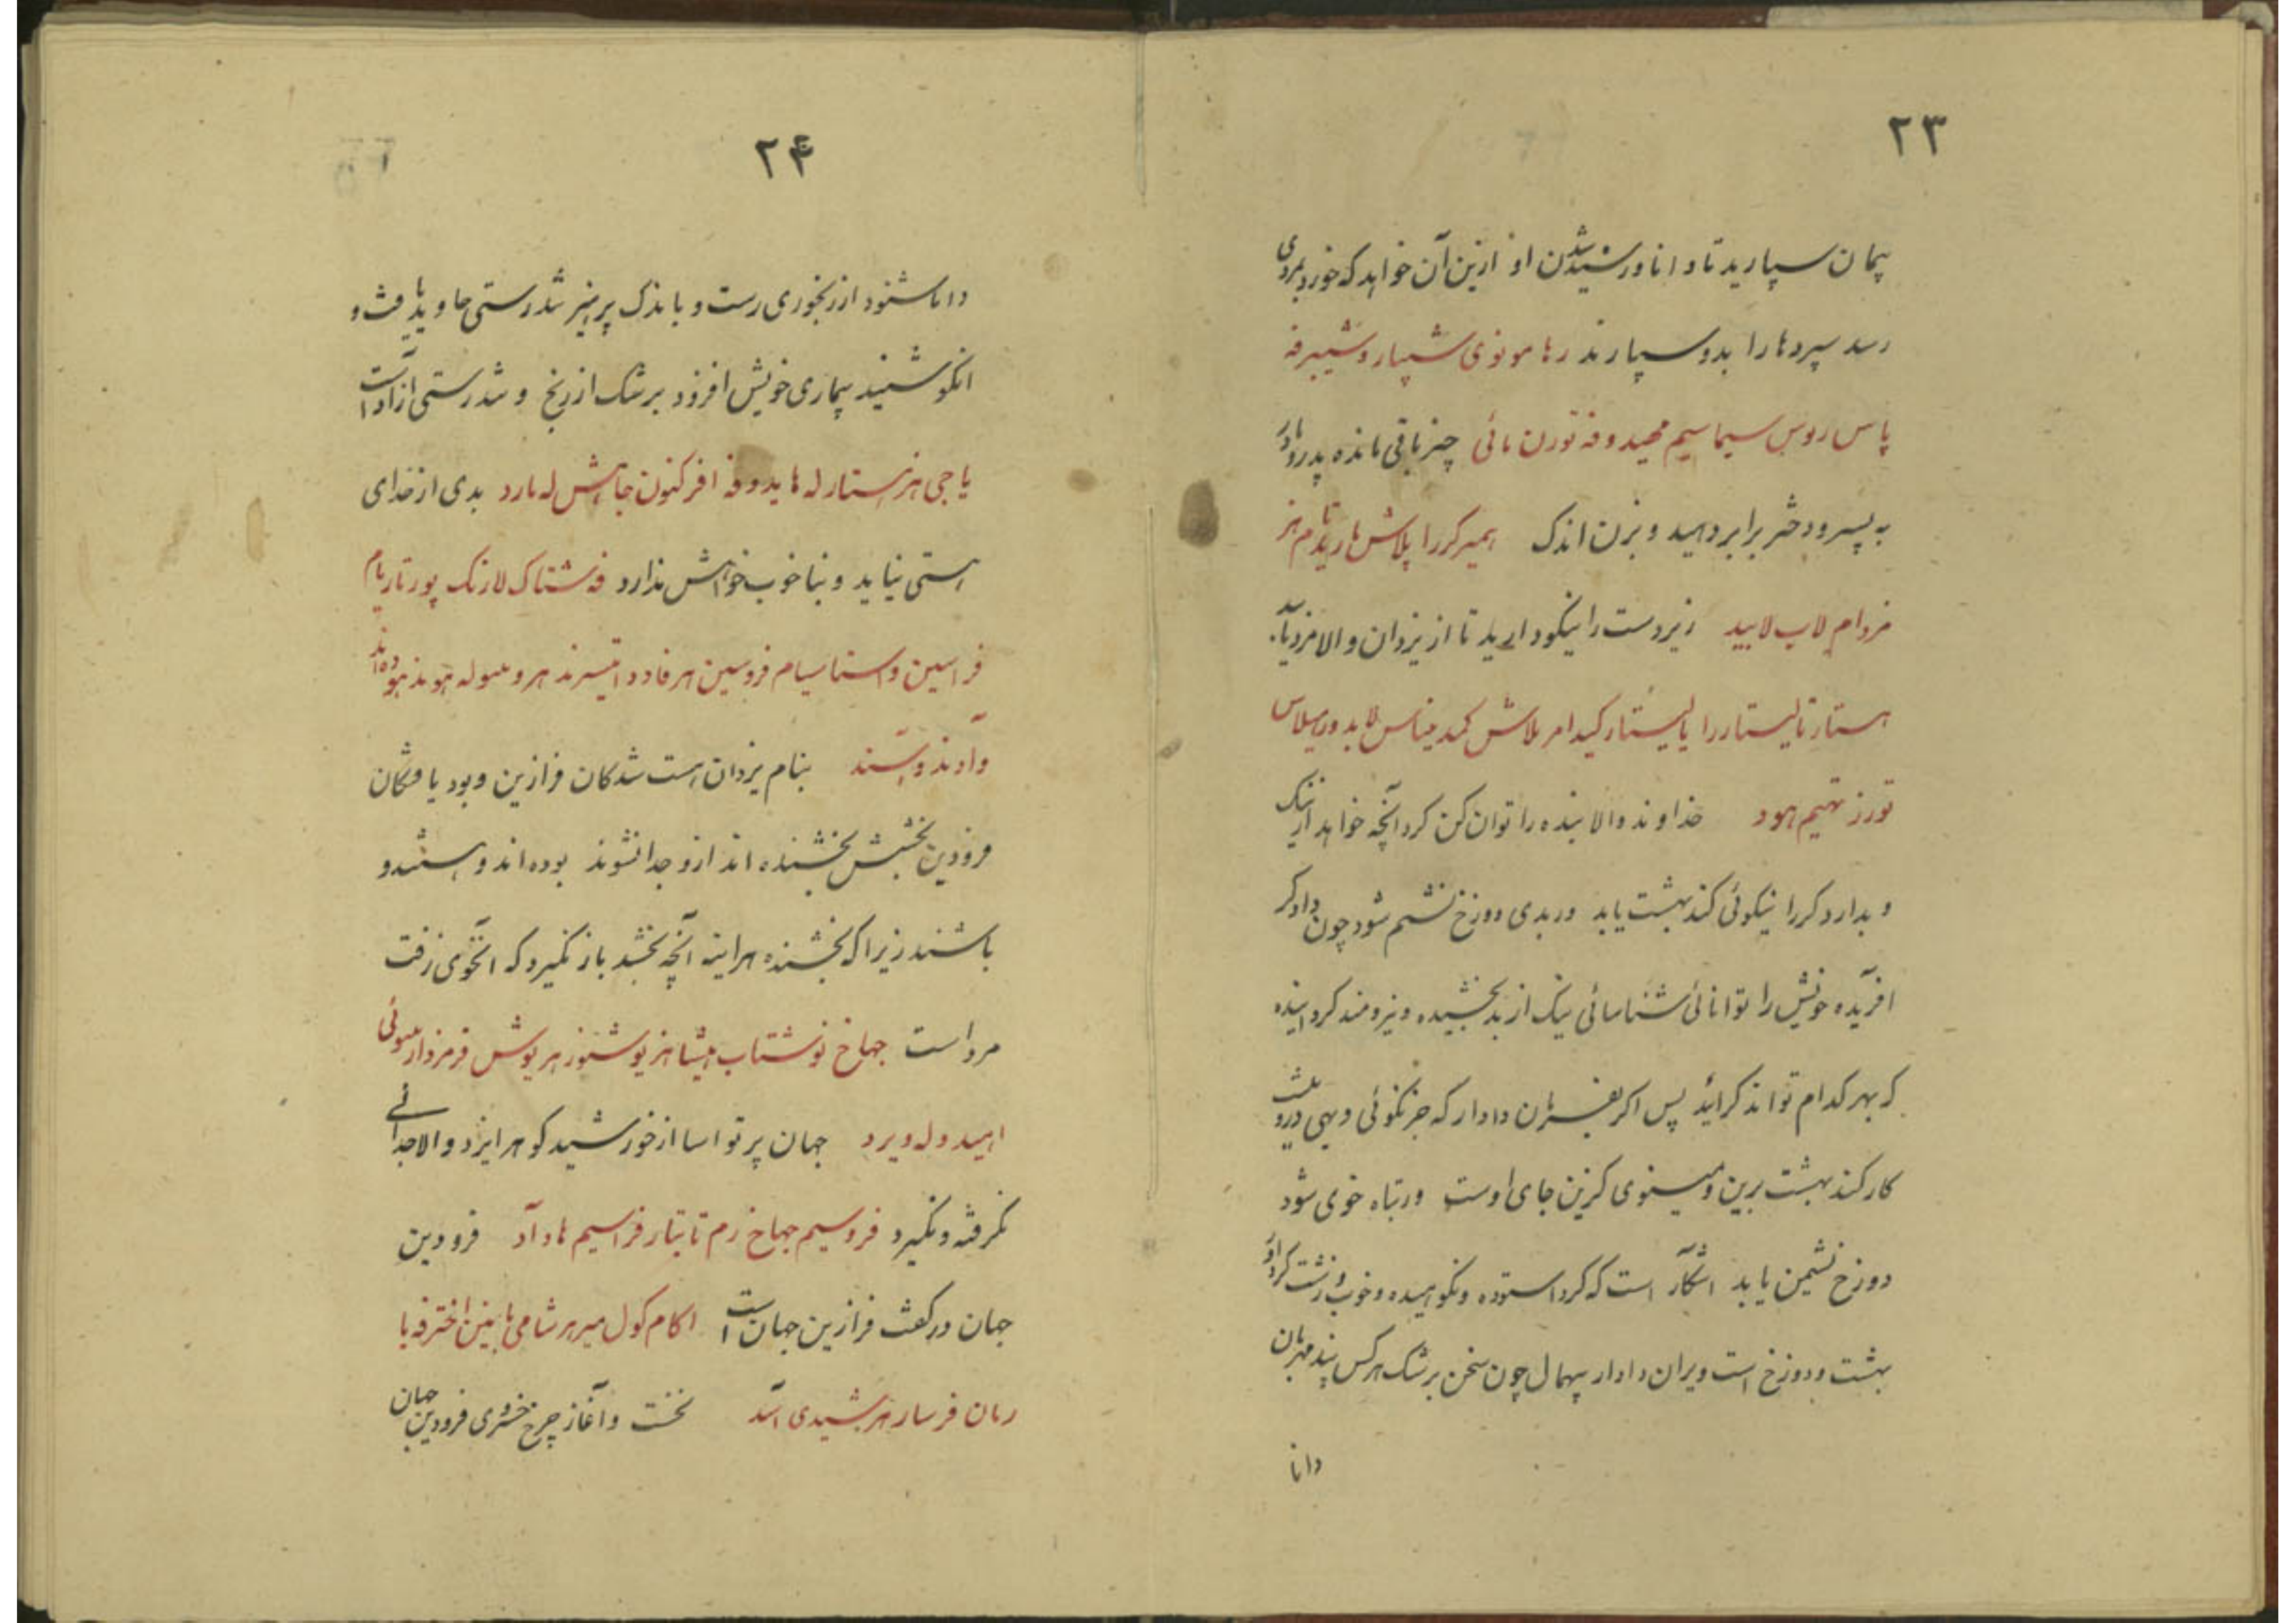 ۲۳
پیمان سپارید تا دانا و رسیده شدن او ازین آن خواهد که خورد بمردی
رسد سپردها را بدو سپارند رها مونوی شپار و شیبرفه
پاس روس سیماسیم مهیدوفه تورن مائی چیز باقی مانده پدر و مادر
به پسر و دختر برابر دهید و بزن اندک همیر کررا پلاش ها رید تا مزم هز
مزدام لاپ لابید زیردست را نیکو دارید تا از یزدان والا مزد یابید
هستار تالیستار را یالیستار کید امر بلاش کمد میناس لابد ور میلاس
تورز تهیم هود خداوند والا بنده را توان کن کرد آنچه خواهد از نیک
و بد ارد کررا نیکوئی کند بهشت یابد ور بدی دوزخ نشیم شود چون دادکر
افریده خویش را توانائی شناسائی نیک از بد بخشیده و نیرومند کردانیده
که بهر کدام تواند کراید پس اکر بفرمان دادار که جز نکوئی و بهی درو نیست
کار کند بهشت برین و مینوی کزین جای اوست ور تباه خوی شود
دوزخ نشیمن یابد اشکار است که کردار ستوده و نکوهیده و خوب و زشت کردار
بهشت و دوزخ است و یران دادار بیهمال چون سخن بزشک هرکس پند مهربان
دانا
۲۴
دانا شنود از رنجوری رست و باندک پرهیز تندرستی جاوید یافت و
انکو نشنید بیماری خویش افزود بزشک از رنج و تندرستی ازاد است
یا جی هنرستار له هایدوفه افرکنون جاهش له مارد بدی از خدای
هستی نیاید و بنا خوب خواهش ندارد فه شتاک لارنک پور تاریام
فراسین واستا سیام فروسین هرفادد امتیسرند هروسوله هوند هوده اند
وآدند و هستند بنام یزدان هست شدکان فرازین و بود یافتکان
فرودین بخشش بخشنده اند ازو جدا نشوند بوده اند و هستند و
باشند زیرا که بخشنده هراینه آنچه بخشد باز نکیرد که انخوی زفت
مرد است جهاخ نوشتاب هیشا هز یوشنوز هریوش فرمزدار سوئی
اهید و له ویرد جهان پرتو اسا از خورشید کوهر ایزد والا جدائی
نکرفته و نکیرد فروسیم جهاخ رم تا بتار فراسیم هاد آد فرودین
جهان در کفت فرازین جهان است اکام کول میر هر شامی ها بنین اختر فه با
رمان فرسار هز شیدی آد نخست و آغاز چرخ خسروی فرودین جهان